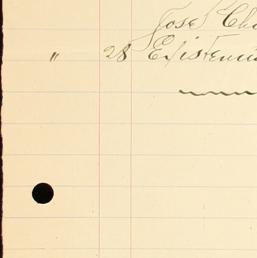 José Cha
" 28 Existenci